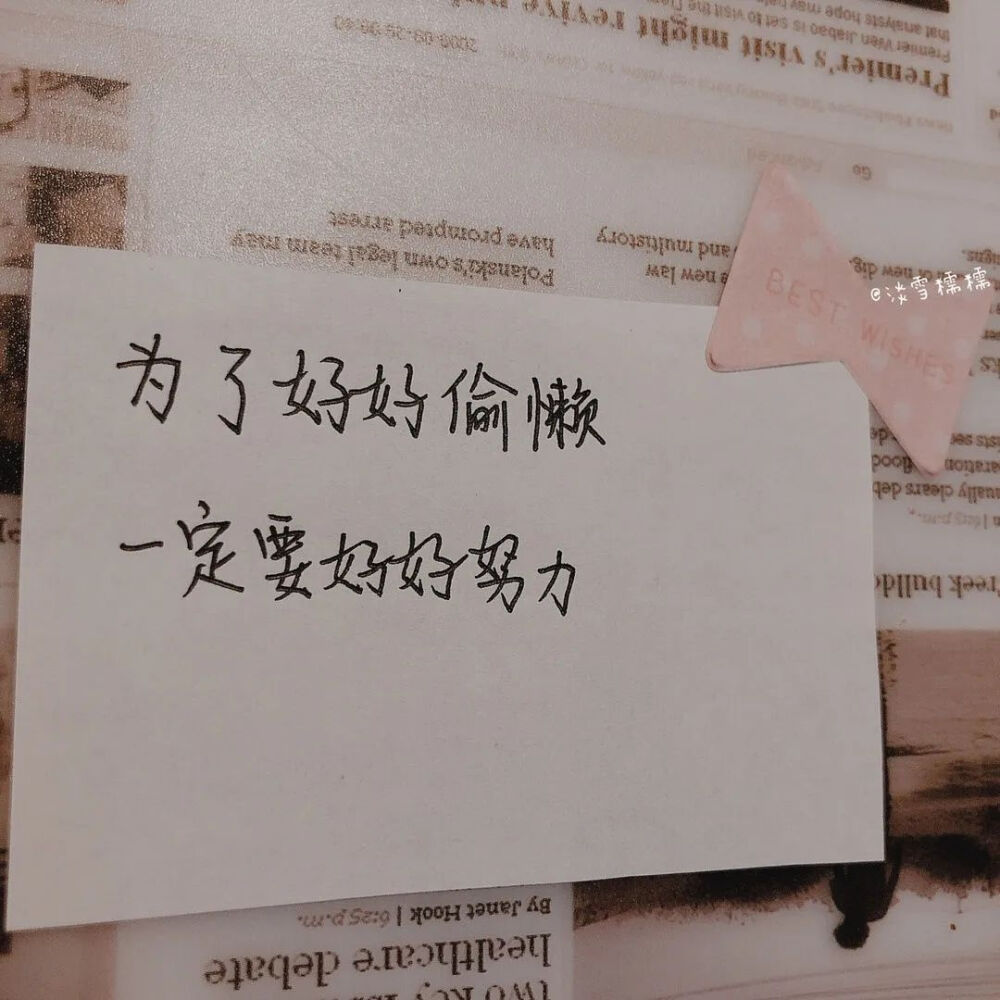 为了好好偷懒
一定要好好努力
BEST WISHES
@淡雪糯糯
Premier's visit might revive
Premier Wen Jiabao is set to visit the
that analysts hope may
Go Advanced
Polanski's own legal team may
have prompted arrest
new law
and multistory
of new
By Janet Hook | 6:25 p.m.
healthcare debate
two key